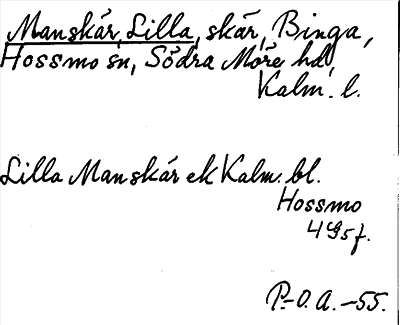 Manskär, Lilla, skär, Binga,
Hossmo sn, Södra Möre hd,
Kalm. l.
Lilla Manskär ek Kalm. bl.
Hossmo
4 G5f.
P.-O. A. -55.